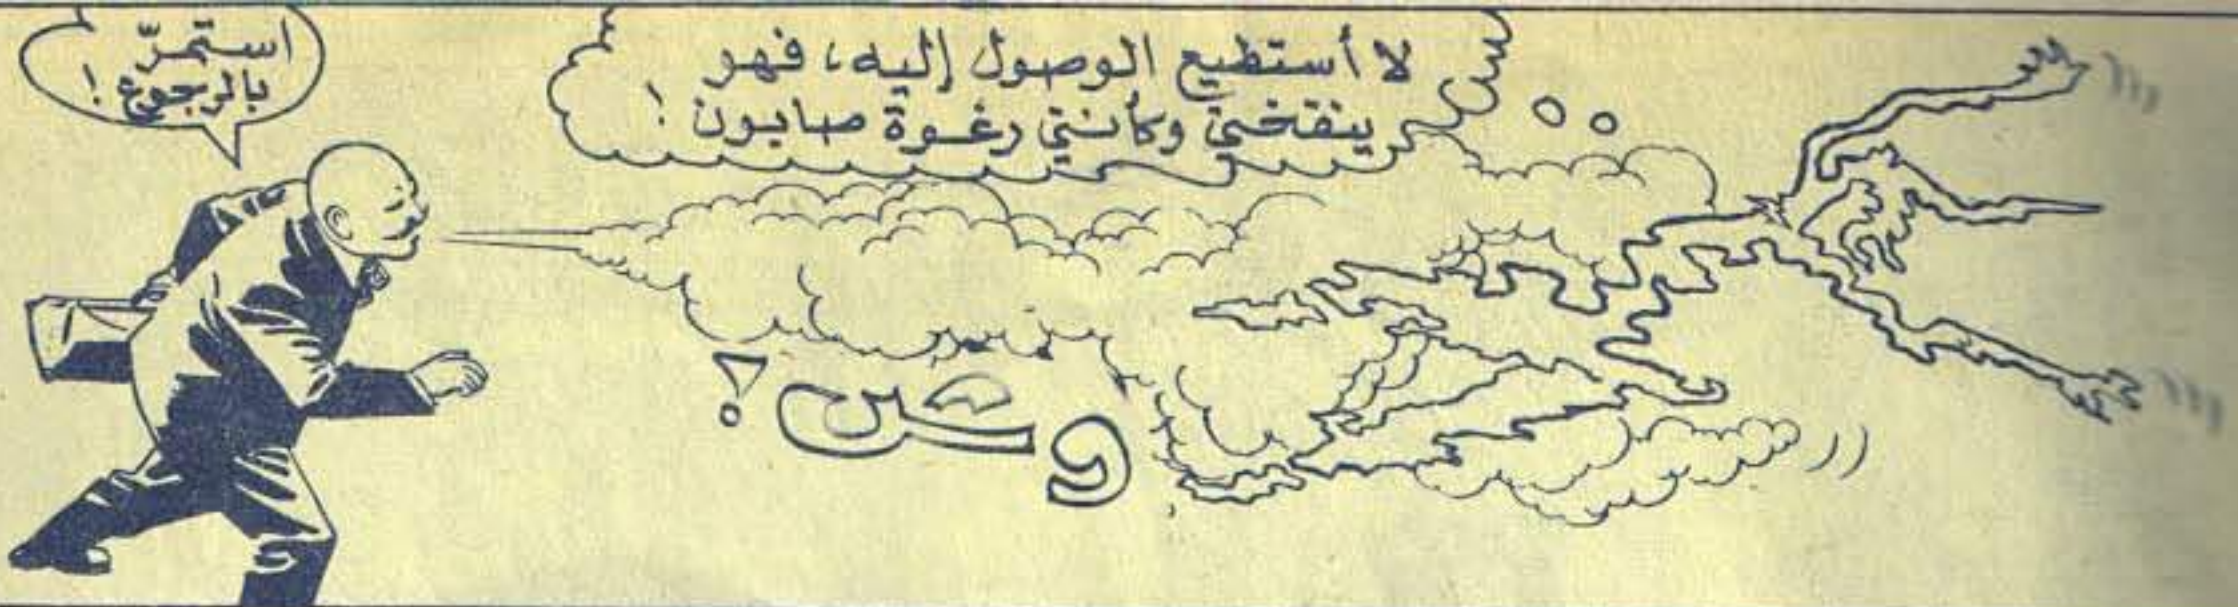 لا أستطيع الوصول إليه، فهو
ينفخني وكأنني رغوة صابون!
استمرّ
بالرجوع!
وش!